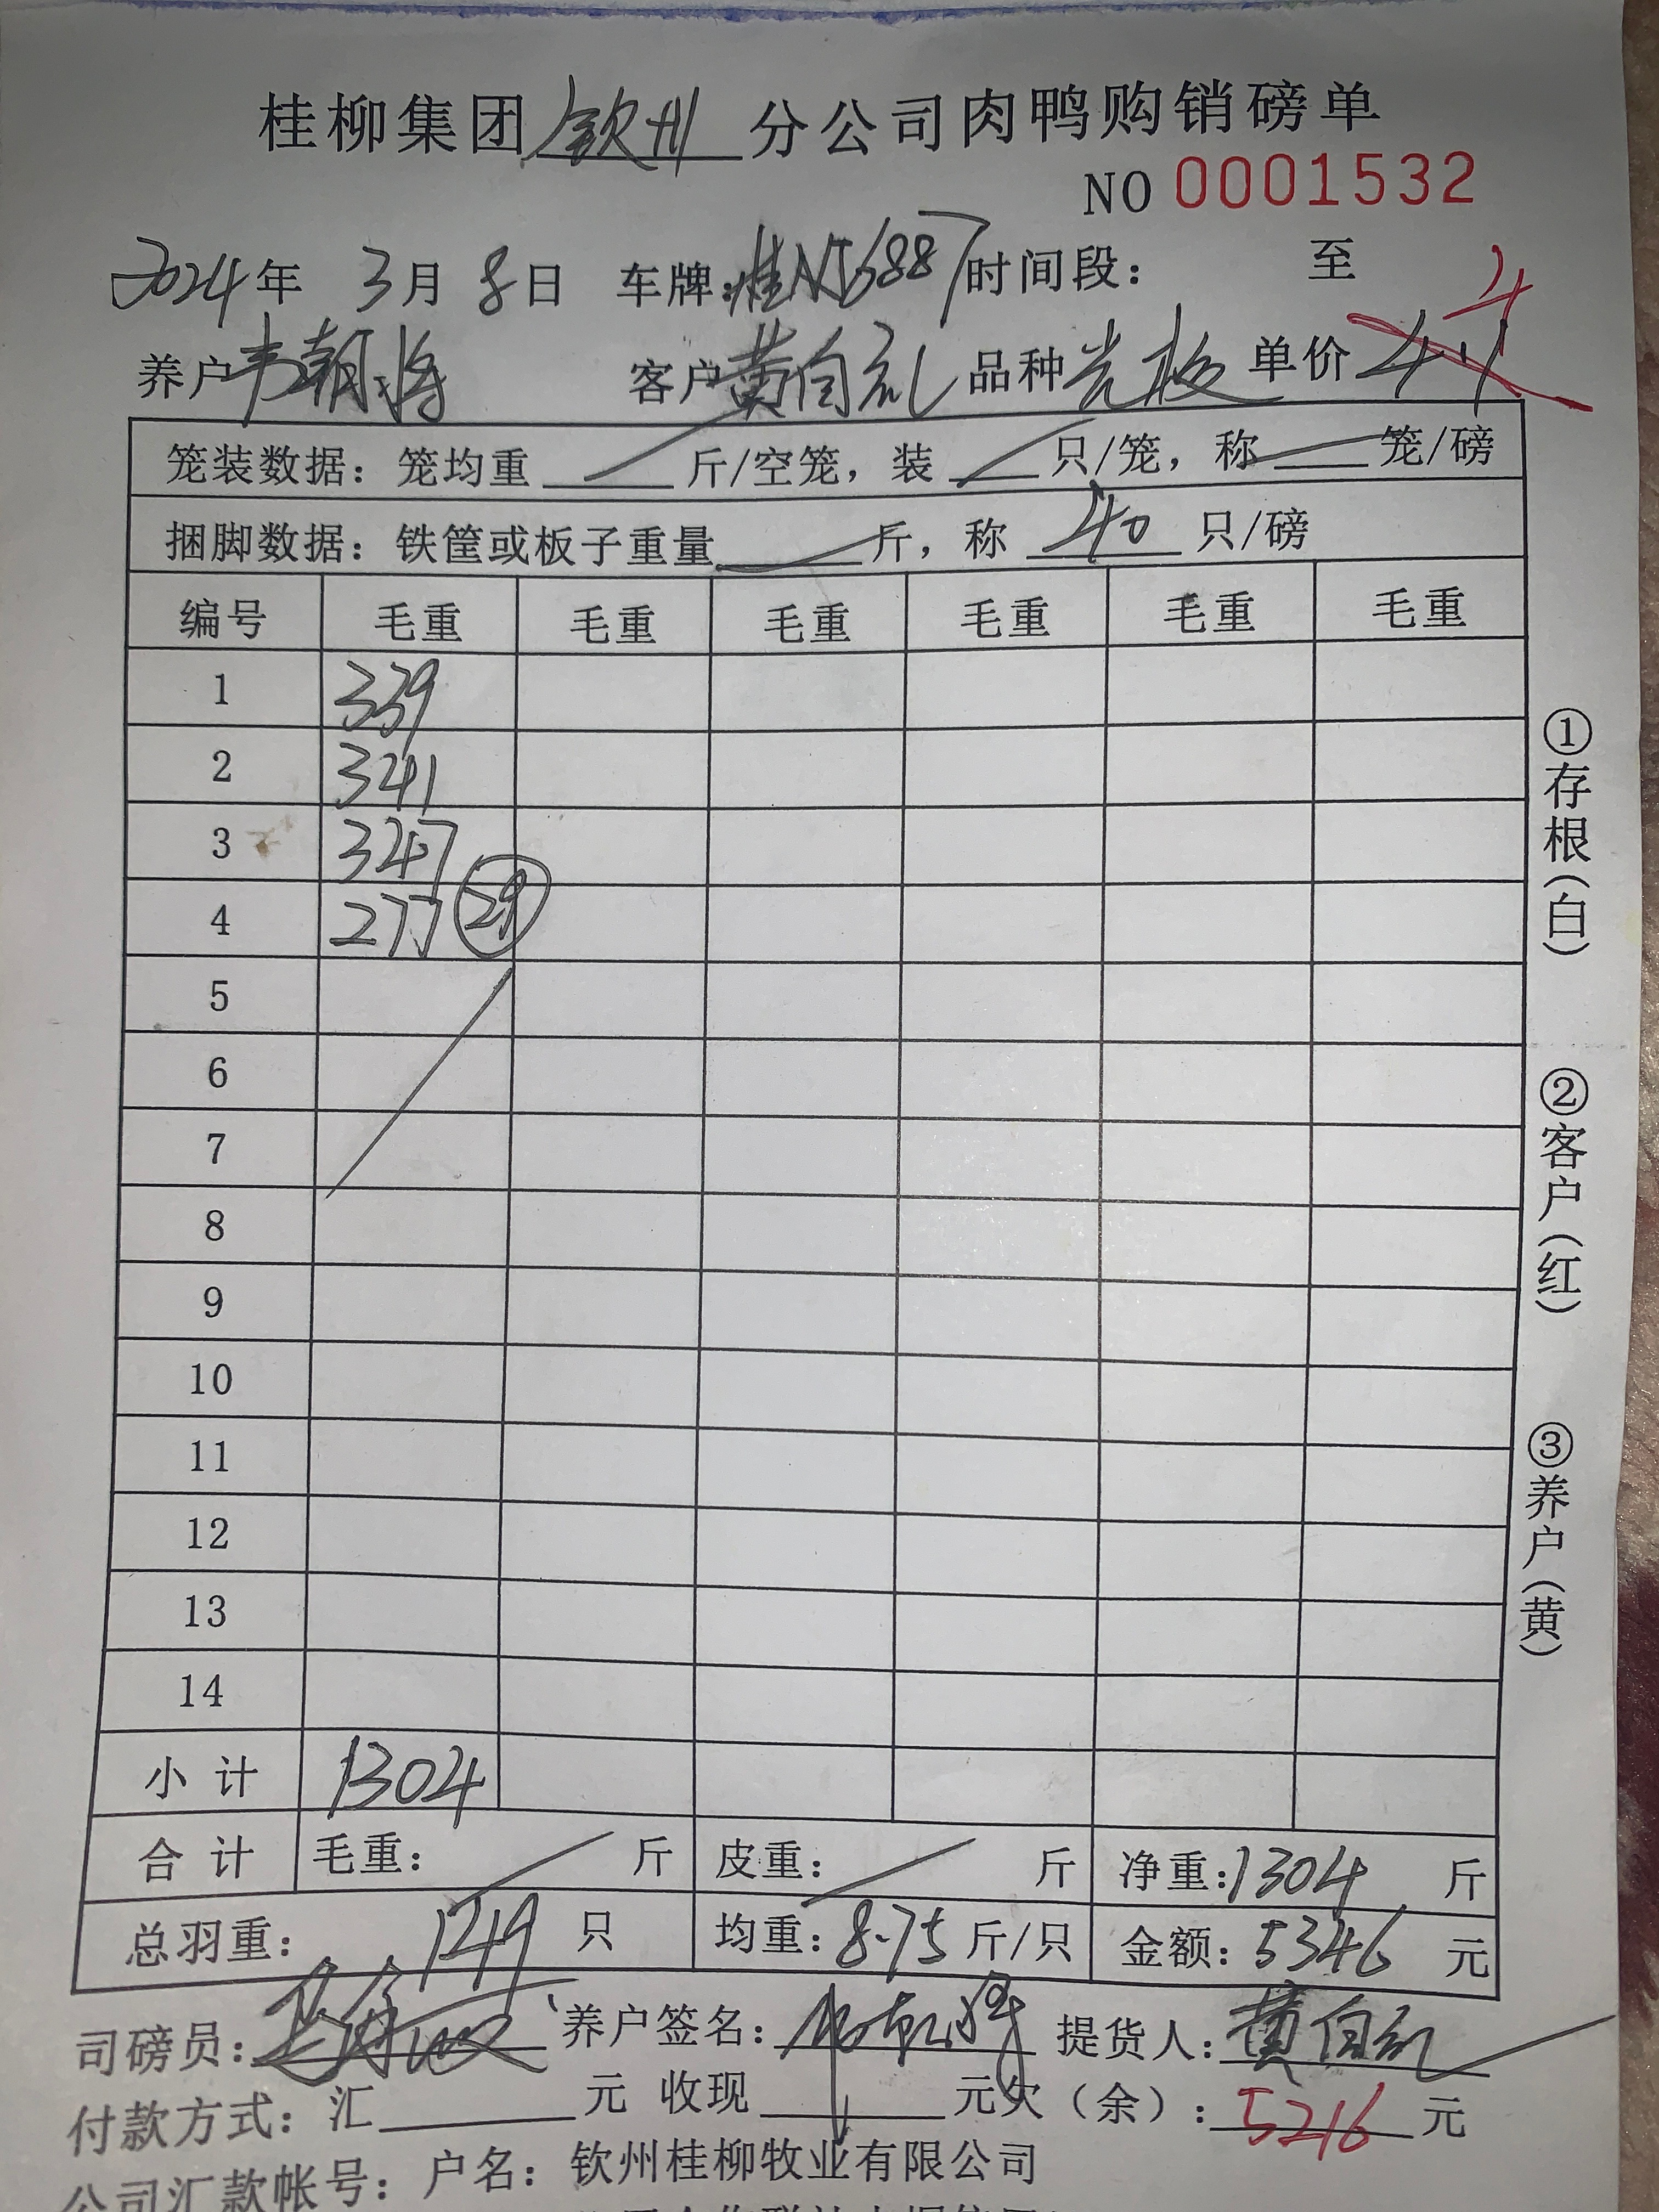 桂柳集团 钦州 分公司肉鸭购销磅单
NO 0001532
2024年 3月 8日 车牌：桂NJ6887 时间段： 至
4
养户 韦朝将 客户 黄自礼 品种 光板 单价 4.1
笼装数据：笼均重 斤/空笼，装 只/笼，称 笼/磅
捆脚数据：铁筐或板子重量 斤，称 40 只/磅
编号 毛重 毛重 毛重 毛重 毛重 毛重
1 339
2 341
3 347
4 277 29
5
6
7
8
9
10
11
12
13
14
小计 1304
合计 毛重： 斤 皮重： 斤 净重：1304 斤
总羽重： 149 只 均重：8.75 斤/只 金额：5346 元
司磅员： 养户签名： 提货人：黄自礼
付款方式：汇 元 收现 元欠（余）：5216 元
公司汇款帐号：户名：钦州桂柳牧业有限公司
①存根（白）
②客户（红）
③养户（黄）